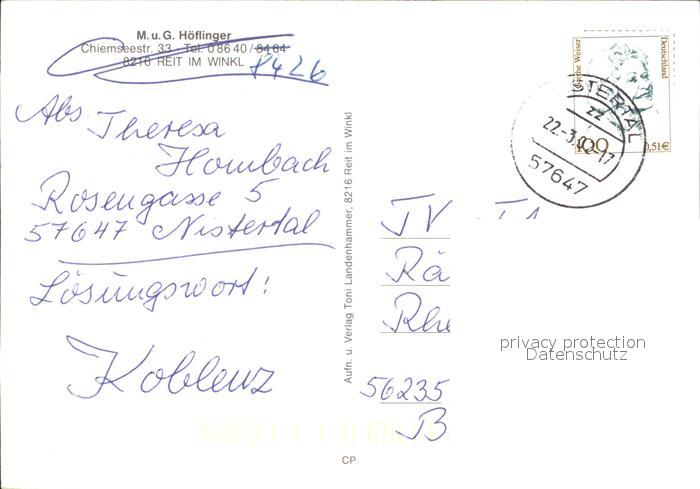 M. u. G. Höflinger
Chiemseestr. 33 · Tel. 0 86 40 / 84 64
8216 REIT IM WINKL
8426
Abs. Theresa
Hombach
Rosengasse 5
57647 Nistertal
Lösungswort:
Koblenz
Aufn. u. Verlag Toni Landenhammer, 8216 Reit im Winkl
CP
Grethe Weiser
Deutschland
100
0,51€
22.-3.02-17
zz
57647
TV
Rä
Rhe
56235
B
privacy protection
Datenschutz